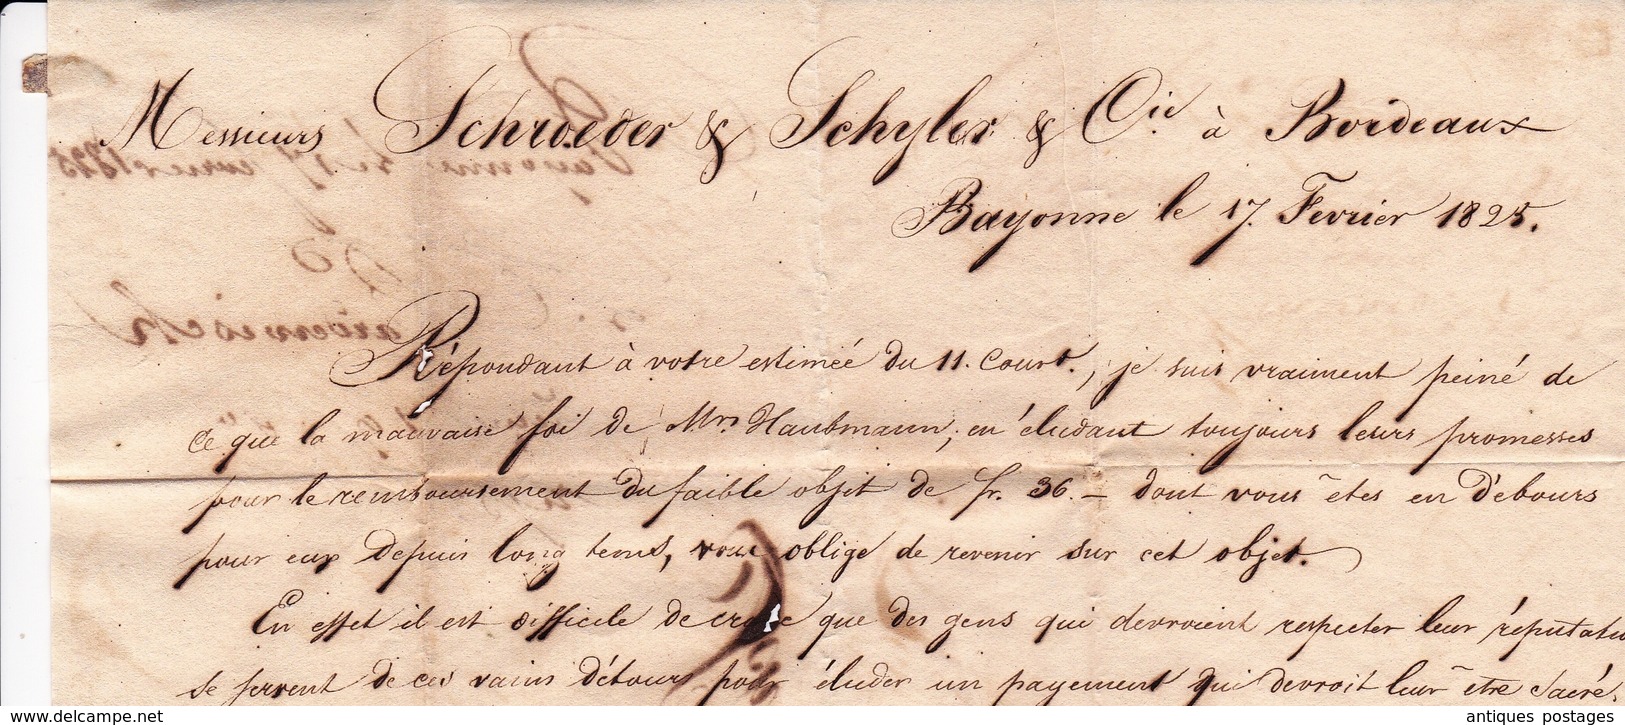 Messieurs Schroeder & Schyler & Cie. à Bordeaux
Bayonne le 17. Fevrier 1825.
Répondant à votre estimée du 11. Court., je suis vraiment peiné de
ce que la mauvaise foi de Mrs Haubmann, en éludant toujours leurs promesses
pour le remboursement du faible objet de fr. 36. — dont vous êtes en débours
pour eux depuis long tems, vous oblige de revenir sur cet objet.
En effet il est difficile de croire que des gens qui devroient respecter leur réputatio
se servent de ces vains détours pour éluder un payement qui devroit leur être sacré.
antiques postages
www.delcampe.net